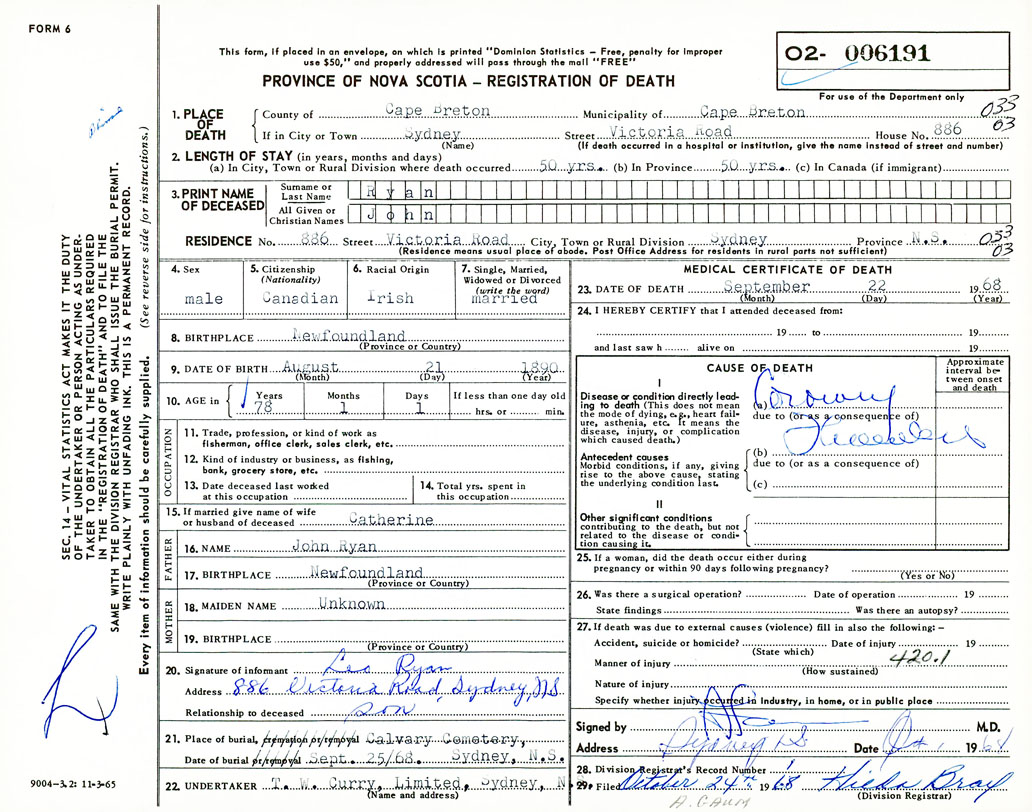 FORM 6
This form, if placed in an envelope, on which is printed "Dominion Statistics – Free, penalty for improper
use $50," and properly addressed will pass through the mail "FREE"
PROVINCE OF NOVA SCOTIA – REGISTRATION OF DEATH
02- 006191
For use of the Department only
1. PLACE OF DEATH
County of Cape Breton Municipality of Cape Breton 033
If in City or Town Sydney Street Victoria Road House No. 886 03
(Name) (If death occurred in a hospital or institution, give the name instead of street and number)
2. LENGTH OF STAY (in years, months and days)
(a) In City, Town or Rural Division where death occurred 50 yrs. (b) In Province 50 yrs. (c) In Canada (if immigrant)
3. PRINT NAME OF DECEASED
Surname or Last Name Ryan
All Given or Christian Names John
RESIDENCE No. 886 Street Victoria Road City, Town or Rural Division Sydney Province N.S. 033
(Residence means usual place of abode. Post Office Address for residents in rural parts not sufficient) 03
4. Sex
male
5. Citizenship
(Nationality)
Canadian
6. Racial Origin
Irish
7. Single, Married,
Widowed or Divorced
(write the word)
married
8. BIRTHPLACE Newfoundland
(Province or Country)
9. DATE OF BIRTH August 21 1890
(Month) (Day) (Year)
10. AGE in Years Months Days If less than one day old
78 1 1 hrs. or min.
OCCUPATION
11. Trade, profession, or kind of work as
fisherman, office clerk, sales clerk, etc.
12. Kind of industry or business, as fishing,
bank, grocery store, etc.
13. Date deceased last worked
at this occupation
14. Total yrs. spent in
this occupation
15. If married give name of wife
or husband of deceased Catherine
FATHER
16. NAME John Ryan
17. BIRTHPLACE Newfoundland
(Province or Country)
MOTHER
18. MAIDEN NAME Unknown
19. BIRTHPLACE
(Province or Country)
20. Signature of informant Leo Ryan
Address 886 Victoria Road, Sydney, NS
Relationship to deceased son
21. Place of burial, cremation or removal Calvary Cemetery,
Date of burial or removal Sept. 25/68. Sydney, N.S.
22. UNDERTAKER T. W. Curry, Limited, Sydney, N
(Name and address)
MEDICAL CERTIFICATE OF DEATH
23. DATE OF DEATH September 22 1968
(Month) (Day) (Year)
24. I HEREBY CERTIFY that I attended deceased from:
19 to 19
and last saw h alive on 19
CAUSE OF DEATH
Approximate
interval be-
tween onset
and death
I
Disease or condition directly lead-
ing to death (This does not mean
the mode of dying, e.g., heart fail-
ure, asthenia, etc. It means the
disease, injury, or complication
which caused death.)
(a) Coronary
due to (or as a consequence of)
Antecedent causes
Morbid conditions, if any, giving
rise to the above cause, stating
the underlying condition last.
(b)
due to (or as a consequence of)
(c)
II
Other significant conditions
contributing to the death, but not
related to the disease or condi-
tion causing it.
25. If a woman, did the death occur either during
pregnancy or within 90 days following pregnancy?
(Yes or No)
26. Was there a surgical operation? Date of operation 19
State findings Was there an autopsy?
27. If death was due to external causes (violence) fill in also the following: –
Accident, suicide or homicide? Date of injury 19
(State which)
Manner of injury 420.1
(How sustained)
Nature of injury
Specify whether injury occurred in Industry, in home, or in public place
Signed by M.D.
Address Sydney NS Date Oct 1 1968
28. Division Registrar's Record Number
29. Filed October 24th 1968 Hilda Bray
(Division Registrar)
SEC. 14 – VITAL STATISTICS ACT MAKES IT THE DUTY
OF THE UNDERTAKER OR PERSON ACTING AS UNDER-
TAKER TO OBTAIN ALL THE PARTICULARS REQUIRED
IN THE "REGISTRATION OF DEATH" AND TO FILE THE
SAME WITH THE DIVISION REGISTRAR WHO SHALL ISSUE THE BURIAL PERMIT.
WRITE PLAINLY WITH UNFADING INK. THIS IS A PERMANENT RECORD.
Every item of information should be carefully supplied. (See reverse side for instructions.)
9004–3.2: 11-3-65